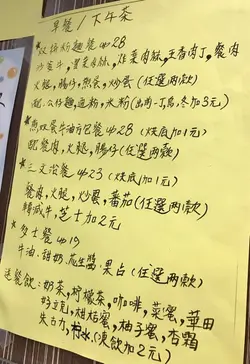 早餐/下午茶
*雙拼粉麵餐 28
沙爹牛,雪菜肉絲,炸菜肉絲,五香肉丁,餐肉
火腿,腸仔,煎蛋,炒蛋(任選兩款)
配:公仔麵,通粉,米粉(出前一丁,烏冬加3元)
*煎双蛋牛油方包餐 28(烘底加1元)
配餐肉,火腿,腸仔(任選兩款)
*三文治餐 23(烘底加1元)
餐肉,火腿,炒蛋,蕃茄(任選兩款)
轉咸牛,芝士加2元
*多士餐 19
牛油,甜奶,花生醬,果占(任選兩款)
送餐飲:奶茶,檸檬茶,咖啡,菜蜜,華田
好立克,柑桔蜜,柚子蜜,杏霜
朱古力,檸水,(凍飲加2元)